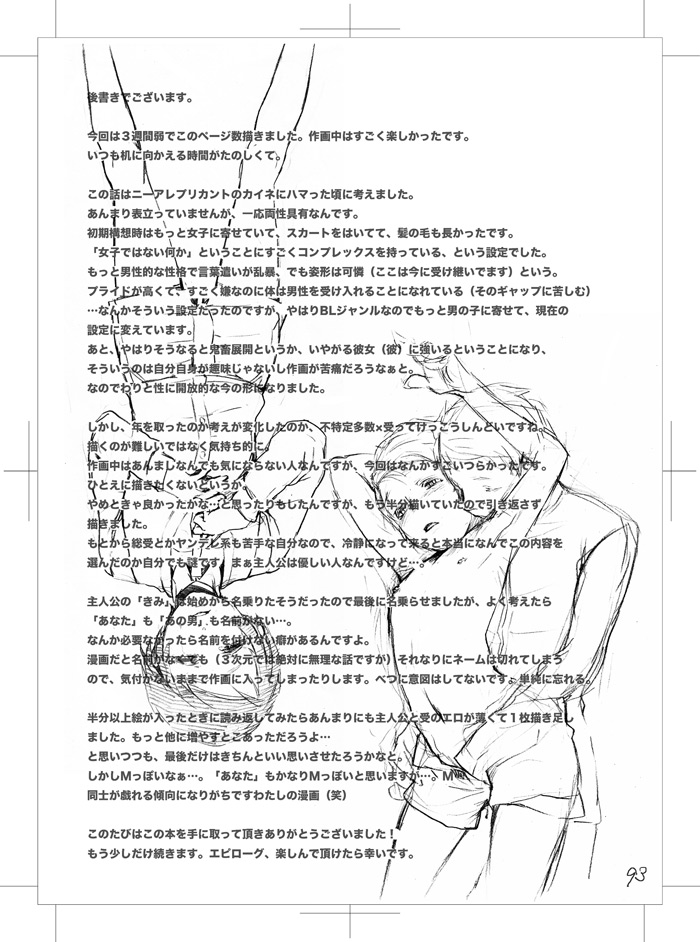 後書きでございます。
今回は３週間弱でこのページ数描きました。作画中はすごく楽しかったです。
いつも机に向かえる時間がたのしくて。
この話はニーアレプリカントのカイネにハマった頃に考えました。
あんまり表立っていませんが、一応両性具有なんです。
初期構想時はもっと女子に寄せていて、スカートをはいてて、髪の毛も長かったです。
「女子ではない何か」ということにすごくコンプレックスを持っている、という設定でした。
もっと男性的な性格で言葉遣いが乱暴、でも姿形は可憐（ここは今に受け継いでます）という。
プライドが高くて、すごく嫌なのに体は男性を受け入れることになれている（そのギャップに苦しむ）
…なんかそういう設定だったのですが、やはりBLジャンルなのでもっと男の子に寄せて、現在の
設定に変えています。
あと、やはりそうなると鬼畜展開というか、いやがる彼女（彼）に強いるということになり、
そういうのは自分自身が趣味じゃないし作画が苦痛だろうなぁと。
なのでわりと性に開放的な今の形になりました。
しかし、年を取ったのか考えが変化したのか、不特定多数×受ってけっこうしんどいですね。
描くのが難しいではなく気持ち的に。
作画中はあんましなんでも気にならない人なんですが、今回はなんかすごいつらかったです。
ひとえに描きたくないというか。
やめときゃ良かったかな…と思ったりもしたんですが、もう半分描いていたので引き返さず
描きました。
もとから総受とかヤンデレ系も苦手な自分なので、冷静になって来ると本当になんでこの内容を
選んだのか自分でも謎です。まぁ主人公は優しい人なんですけど…。
主人公の「きみ」は始めから名乗りたそうだったので最後に名乗らせましたが、よく考えたら
「あなた」も「あの男」も名前がない…。
なんか必要なかったら名前を付けない癖があるんですよ。
漫画だと名前がなくても（３次元では絶対に無理な話ですが）それなりにネームは切れてしまう
ので、気付かないままで作画に入ってしまったりします。べつに意図はしてないですよ単純に忘れる。
半分以上絵が入ったときに読み返してみたらあんまりにも主人公と受のエロが薄くて１枚描き足し
ました。もっと他に増やすとこあっただろうよ…
と思いつつも、最後だけはきちんといい思いさせたろうかなと。
しかしMっぽいなぁ…。「あなた」もかなりMっぽいと思いますが…。M
同士が戯れる傾向になりがちですわたしの漫画（笑）
このたびはこの本を手に取って頂きありがとうございました！
もう少しだけ続きます。エピローグ、楽しんで頂けたら幸いです。
93